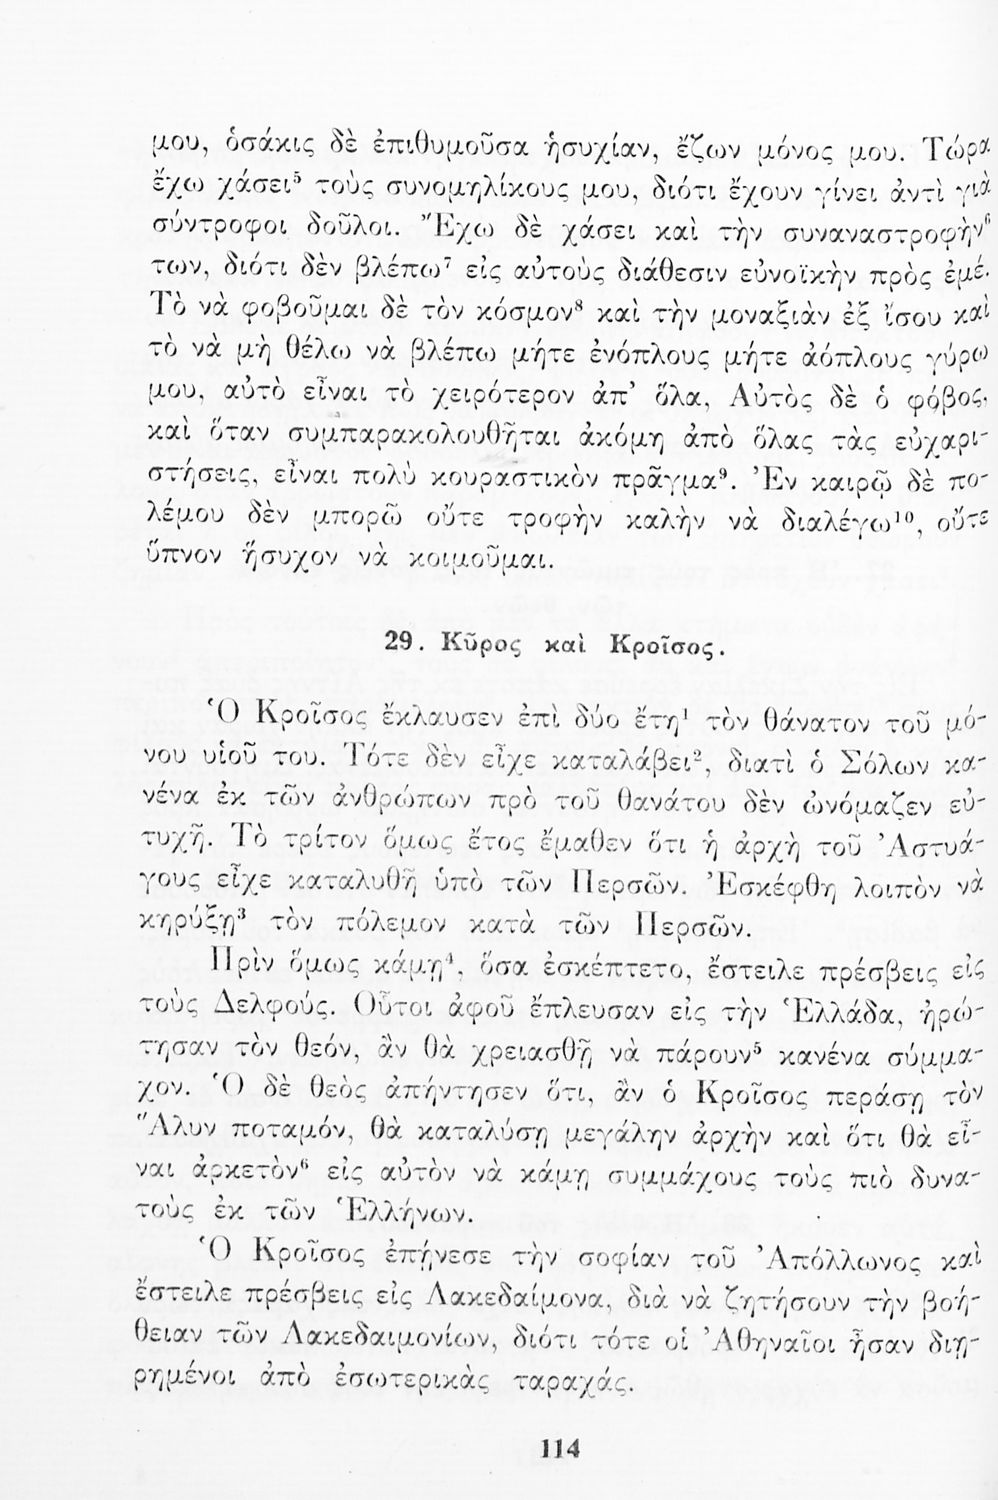 μου, ὁσάκις δὲ ἐπιθυμοῦσα ἡσυχίαν, ἔζων μόνος μου. Τώρα
ἔχω χάσει⁵ τοὺς συνομηλίκους μου, διότι ἔχουν γίνει ἀντὶ γιὰ
σύντροφοι δοῦλοι. Ἔχω δὲ χάσει καὶ τὴν συναναστροφήν⁶
των, διότι δὲν βλέπω⁷ εἰς αὐτοὺς διάθεσιν εὐνοϊκὴν πρὸς ἐμέ.
Τὸ νὰ φοβοῦμαι δὲ τὸν κόσμον⁸ καὶ τὴν μοναξιὰν ἐξ ἴσου καὶ
τὸ νὰ μὴ θέλω νὰ βλέπω μήτε ἐνόπλους μήτε ἀόπλους γύρω
μου, αὐτὸ εἶναι τὸ χειρότερον ἀπ’ ὅλα, Αὐτὸς δὲ ὁ φόβος,
καὶ ὅταν συμπαρακολουθῆται ἀκόμη ἀπὸ ὅλας τὰς εὐχαρι-
στήσεις, εἶναι πολὺ κουραστικὸν πρᾶγμα⁹. Ἐν καιρῷ δὲ πο-
λέμου δὲν μπορῶ οὔτε τροφὴν καλὴν νὰ διαλέγω¹⁰, οὔτε
ὕπνον ἥσυχον νὰ κοιμοῦμαι.
29. Κῦρος καὶ Κροῖσος.
Ὁ Κροῖσος ἔκλαυσεν ἐπὶ δύο ἔτη¹ τὸν θάνατον τοῦ μό-
νου υἱοῦ του. Τότε δὲν εἶχε καταλάβει², διατὶ ὁ Σόλων κα-
νένα ἐκ τῶν ἀνθρώπων πρὸ τοῦ θανάτου δὲν ὠνόμαζεν εὐ-
τυχῆ. Τὸ τρίτον ὅμως ἔτος ἔμαθεν ὅτι ἡ ἀρχὴ τοῦ Ἀστυά-
γους εἶχε καταλυθῆ ὑπὸ τῶν Περσῶν. Ἐσκέφθη λοιπὸν νὰ
κηρύξῃ³ τὸν πόλεμον κατὰ τῶν Περσῶν.
Πρὶν ὅμως κάμῃ⁴, ὅσα ἐσκέπτετο, ἔστειλε πρέσβεις εἰς
τοὺς Δελφούς. Οὗτοι ἀφοῦ ἔπλευσαν εἰς τὴν Ἑλλάδα, ἠρώ-
τησαν τὸν θεόν, ἂν θὰ χρειασθῇ νὰ πάρουν⁵ κανένα σύμμα-
χον. Ὁ δὲ θεὸς ἀπήντησεν ὅτι, ἂν ὁ Κροῖσος περάσῃ τὸν
Ἅλυν ποταμόν, θὰ καταλύσῃ μεγάλην ἀρχὴν καὶ ὅτι θὰ εἶ-
ναι ἀρκετὸν⁶ εἰς αὐτὸν νὰ κάμῃ συμμάχους τοὺς πιὸ δυνα-
τοὺς ἐκ τῶν Ἑλλήνων.
Ὁ Κροῖσος ἐπῄνεσε τὴν σοφίαν τοῦ Ἀπόλλωνος καὶ
ἔστειλε πρέσβεις εἰς Λακεδαίμονα, διὰ νὰ ζητήσουν τὴν βοή-
θειαν τῶν Λακεδαιμονίων, διότι τότε οἱ Ἀθηναῖοι ἦσαν διῃ-
ρημένοι ἀπὸ ἐσωτερικὰς ταραχάς.
114